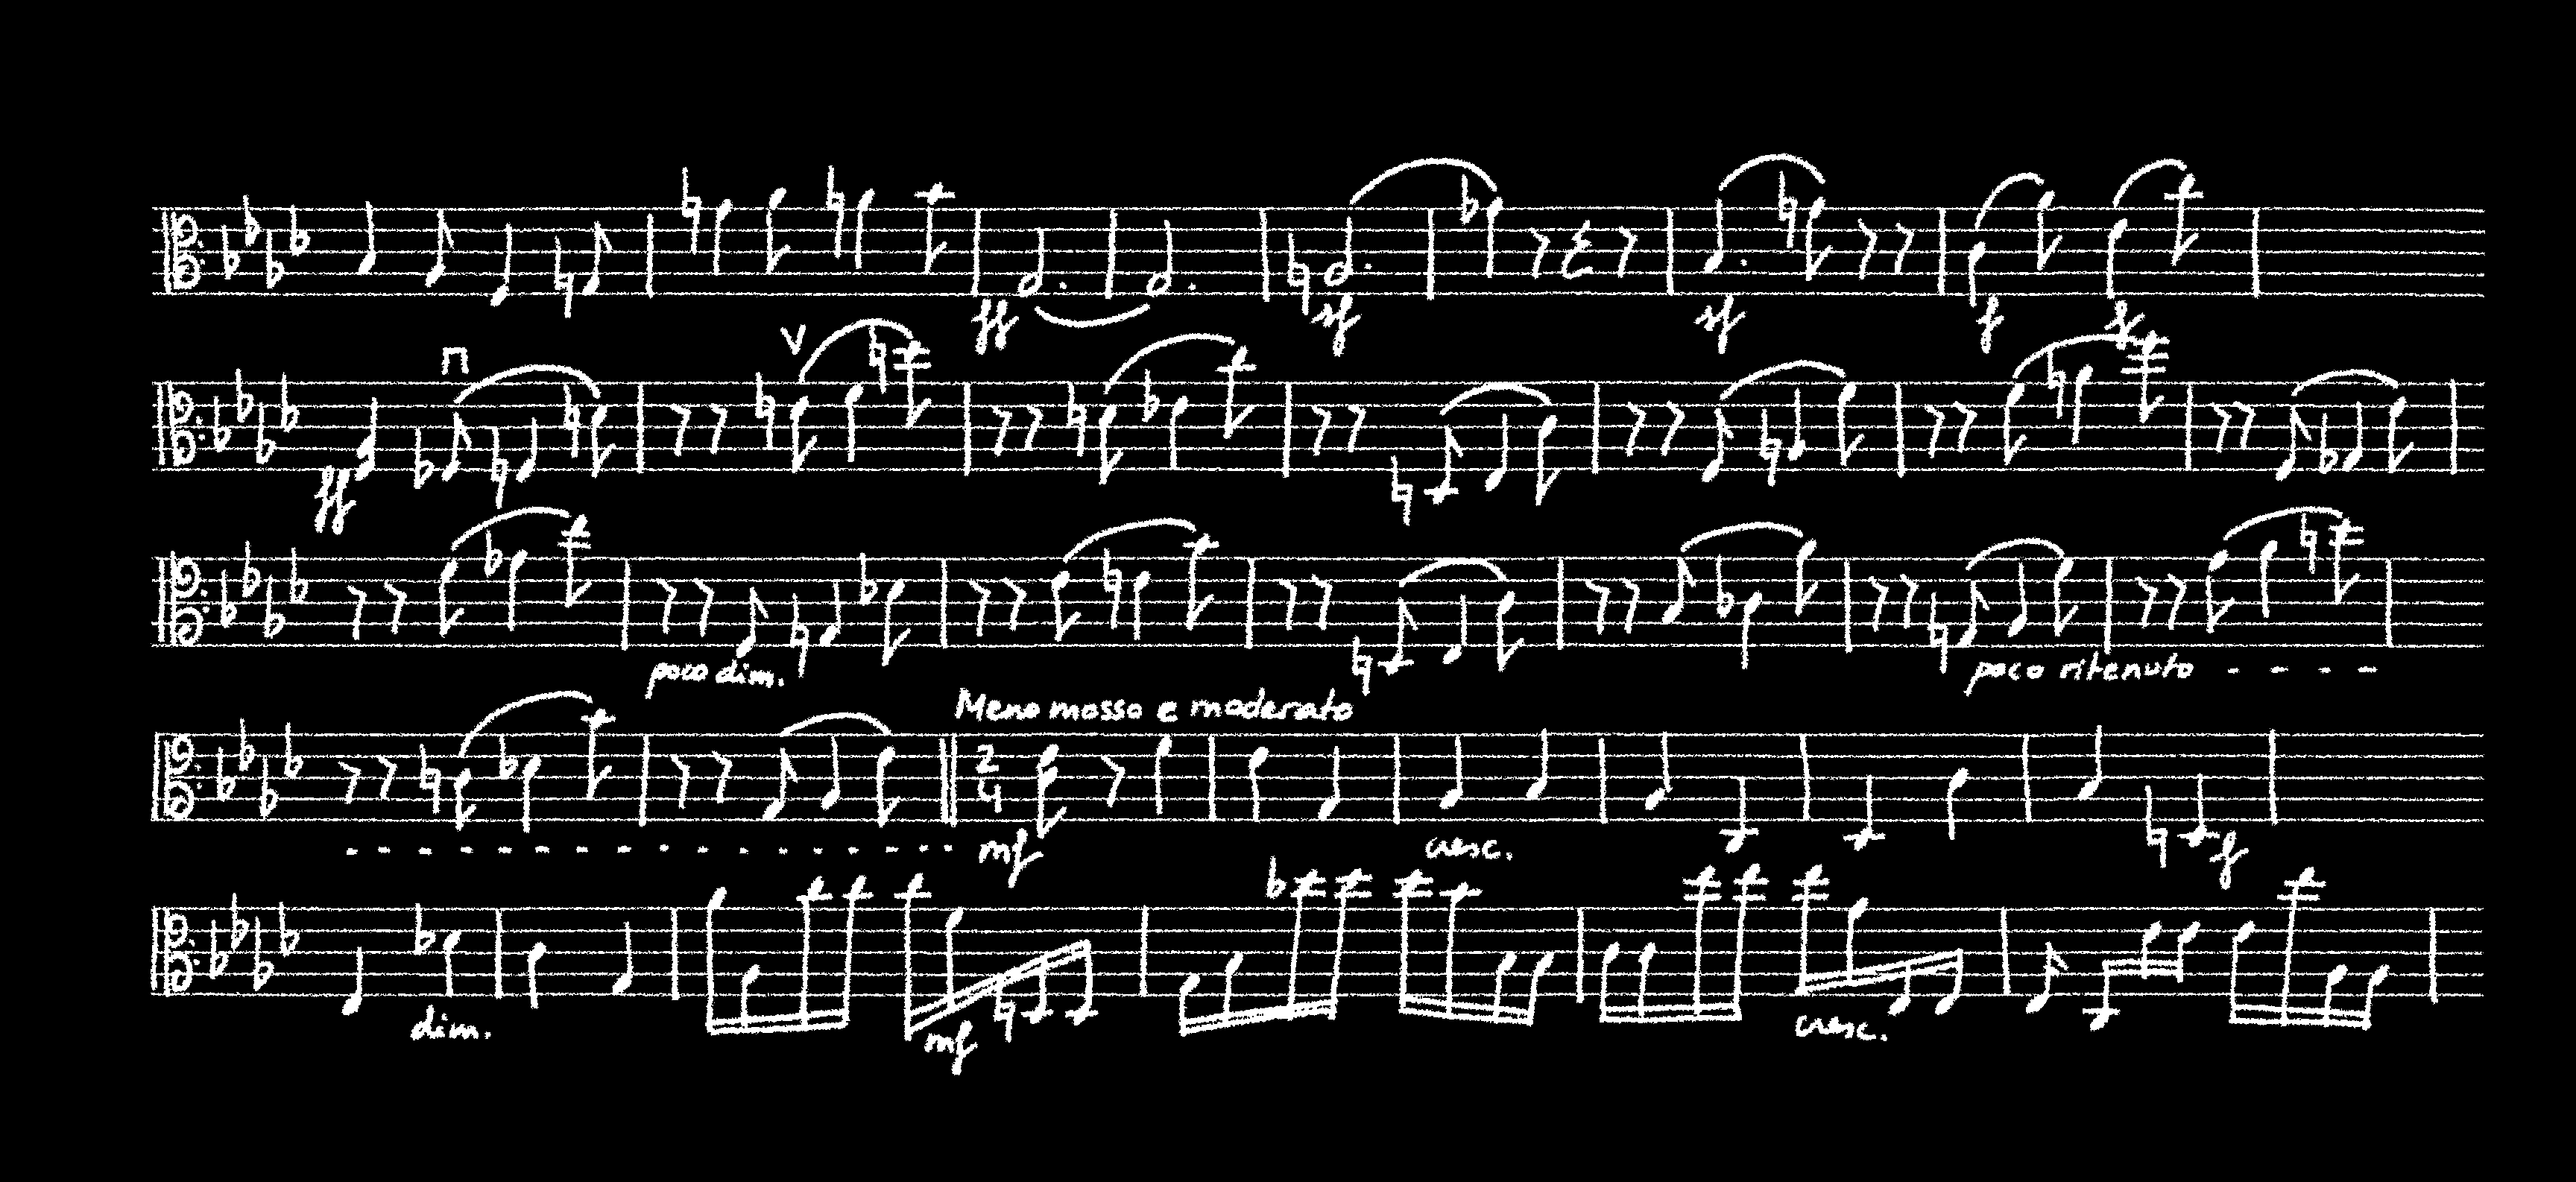 ff sf sf f f
ff
poco dim. poco ritenuto - - - -
Meno mosso e moderato
2 4 mf cresc. f
dim. mf cresc.